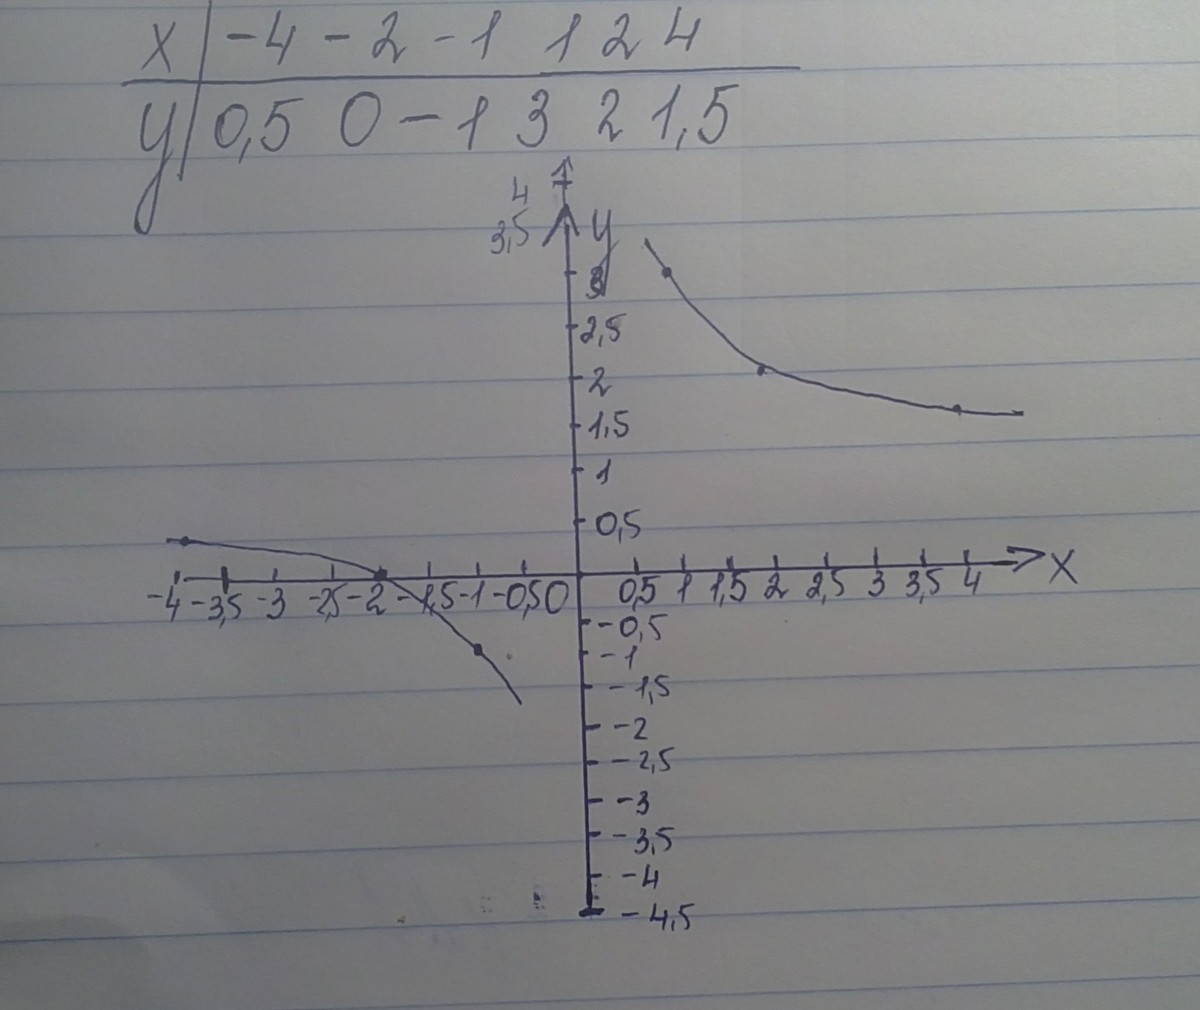 x | -4 -2 -1 1 2 4
y | 0,5 0 -1 3 2 1,5
4
3,5 y
3
2,5
2
1,5
1
0,5
-4 -3,5 -3 -2,5 -2 -1,5 -1 -0,5 0 0,5 1 1,5 2 2,5 3 3,5 4 x
-0,5
-1
-1,5
-2
-2,5
-3
-3,5
-4
-4,5